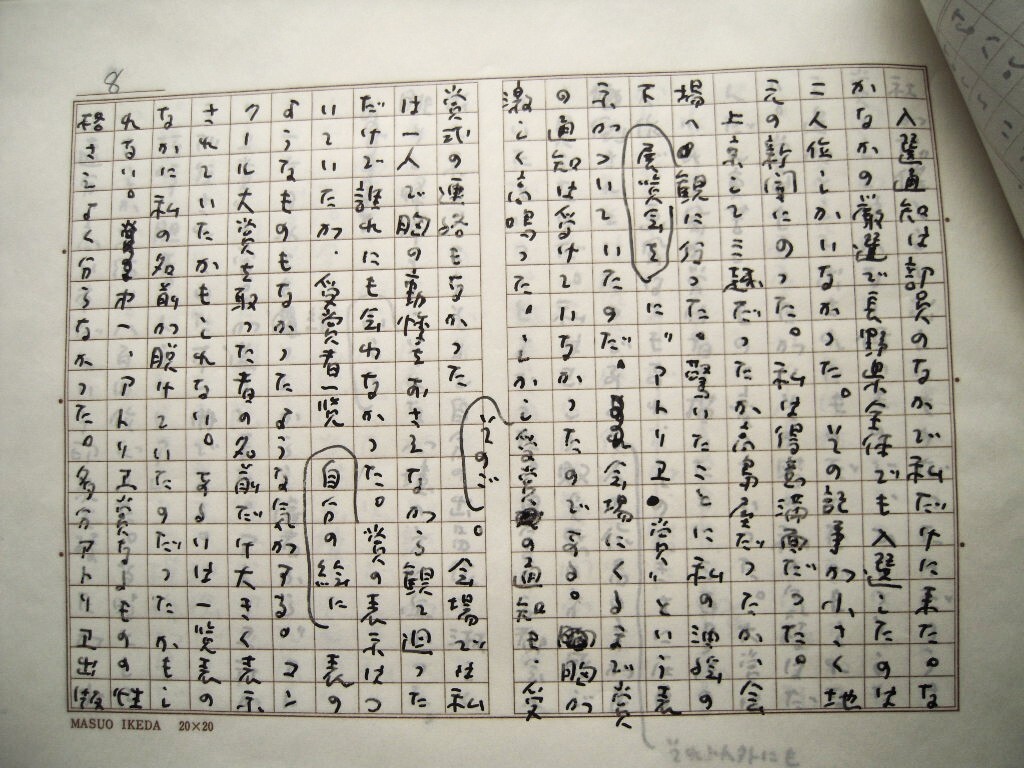 8
入選通知は部員のなかで私だけに来た。な
かなかの厳選で長野県全体でも入選したのは
二人位しかいなかった。その記事が小さく地
元の新聞にのった。私は得意満面だった。
上京して三越だったか高島屋だったか、会
場へ観に行って驚いたことに私の油絵の
下に"アトリエ賞"という賞の表
展覧会を
示がついていたのだ。会場に
の通知は受けていなかったので 胸が
激しく高鳴った。しかし受賞の通知も、受
賞式の連絡もなかった。会場では私
は一人で胸の動悸をおさえながら観て廻った
だけで誰にも会わなかった。賞の表示はつ
いていたが、受賞者一覧表の
自分の絵に
ようなものもなかったような気がする。コン
クール大賞を取った者の名前だけ大きく表示
されていたかもしれない。あるいは一覧表の
なかに私の名前が脱けていたのだったかもし
れない。アトリエ賞なるものの性
格さえよく分らなかった。多分アトリエ出版
MASUO IKEDA 20×20